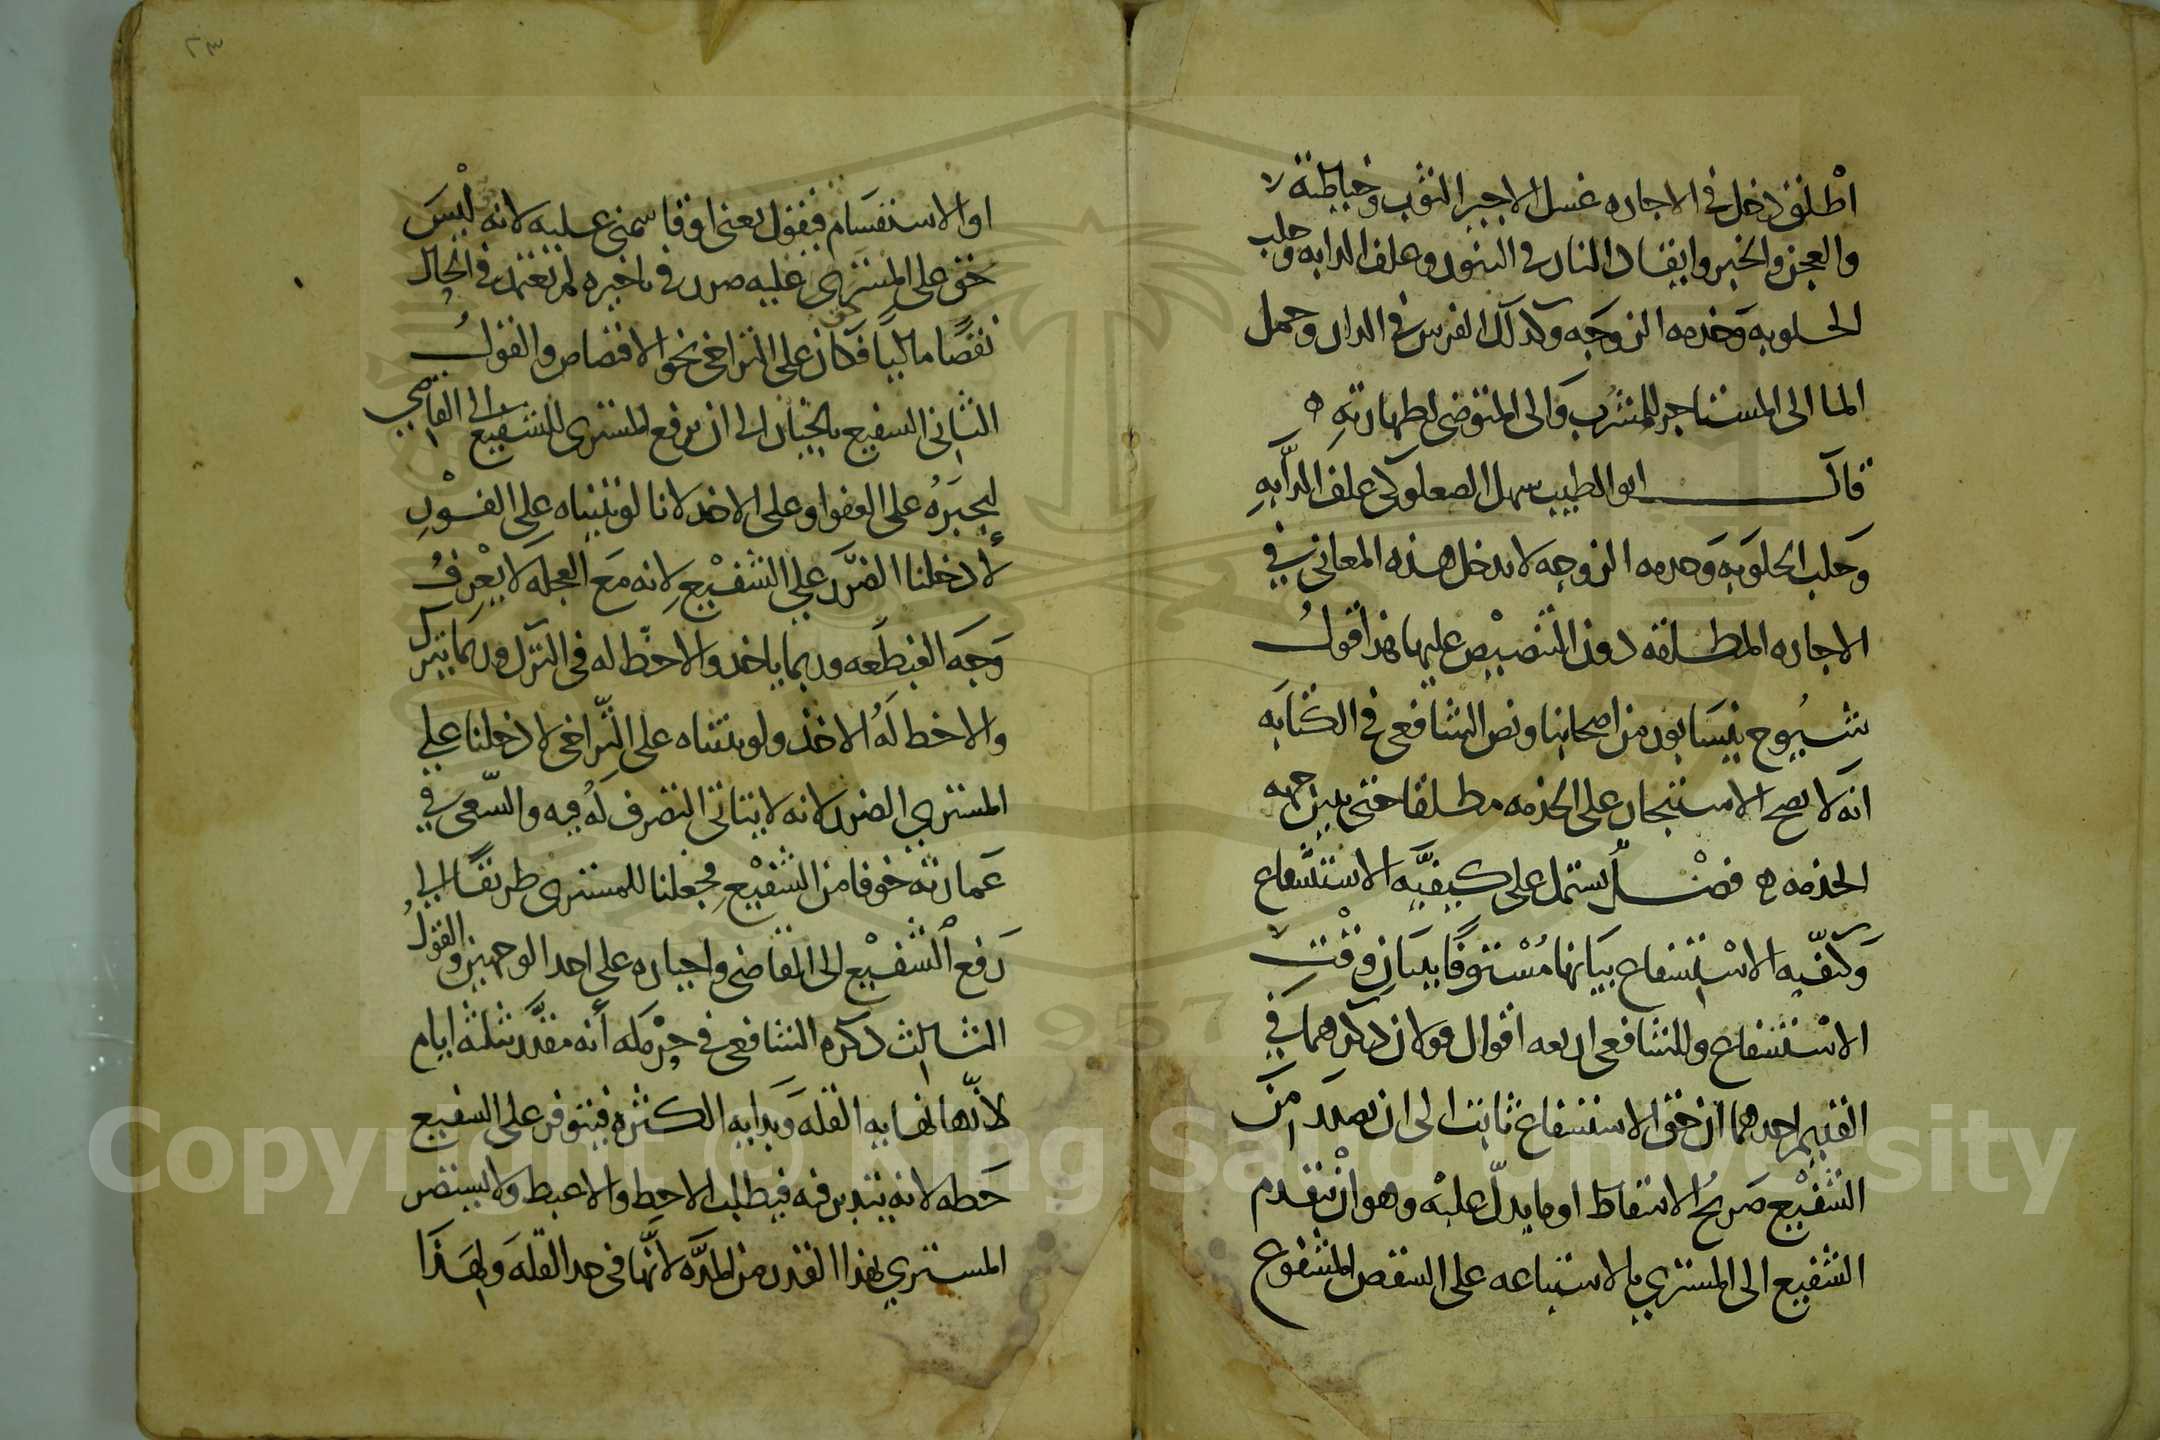 اطلق دخل في الاجاره غسل الاجير الثوب وخياطته لا
والعجن والخبز وايقاد النار في التنور وعلف الدابه وحلب
الحلوبه وخدمه الزوجه وكذلك الفرس في الدار وحمل
الما الى المستاجر للشرب والى المتوضى لطهارته ه
قال ابو الطيب سهل الصعلوكي علف الدابه
وحلب الحلوبه وخدمه الزوجه لا يدخل هذه المعاني في
الاجاره المطلقه دون التنصيص عليها هذا قول
شيوخ نيسابور من اصحابنا ونص الشافعي في الكتابه
انه لا يصح الاستيجار على الخدمه مطلقا حتى يبين جهه
الخدمه ه فصل يشتمل على كيفيه الاستشفاع
وكيفيه الاستشفاع بيانها مستوفا ببيان وقت
الاستشفاع وللشافعي اربعه اقوال قولان ذكرهما في
القديم احدهما ان حق الاستشفاع ثابت الى ان يصدر من
الشفيع صريح الاسقاط او ما يدل عليه وهو ان يتقدم
الشفيع الى المشتري بالاستباعه على الشقص المشفوع
او الاستقسام فيقول بعني او قاسمني عليه لانه ليس
حق على المشتري عليه ضرر في تاخيره لم تغتمد في الحال
نقصا ماليا فكان على التراخي نحو الاقتصاص والقول
الثاني الشفيع بالخيار الى ان يرفع المشتري للشفيع الى القاضي
ليجبره على العفو او على الاخذ لانا لو بنيناه على الفور
لادخلنا الضرر على الشفيع لانه مع العجله لا يعرف
وجه الغبطه وربما ياخذ والاحظ له في الترك وربما يترك
والاحظ له الاخذ ولو بنيناه على التراخي لادخلنا على
المشتري الضرر لانه لا يتاتى التصرف له فيه والسعي في
عمارته خوفا من الشفيع فجعلنا للمشتري طريقا الى
رفع الشفيع الى القاضي واجباره على احد الوجهين والقول
الثالث ذكره الشافعي في حرمله أنه مقدر بثلثه ايام
لانها نهايه القله وبدايه الكثره فيتوفر على الشفيع
حظه لانه يتدبر فيه فيطلب الاحظ والاغبط ولا يستضر
المشتري بهذا القدر من المده لانها في حد القله ولهذا
Copyright © King Saud University
1957
٢٣